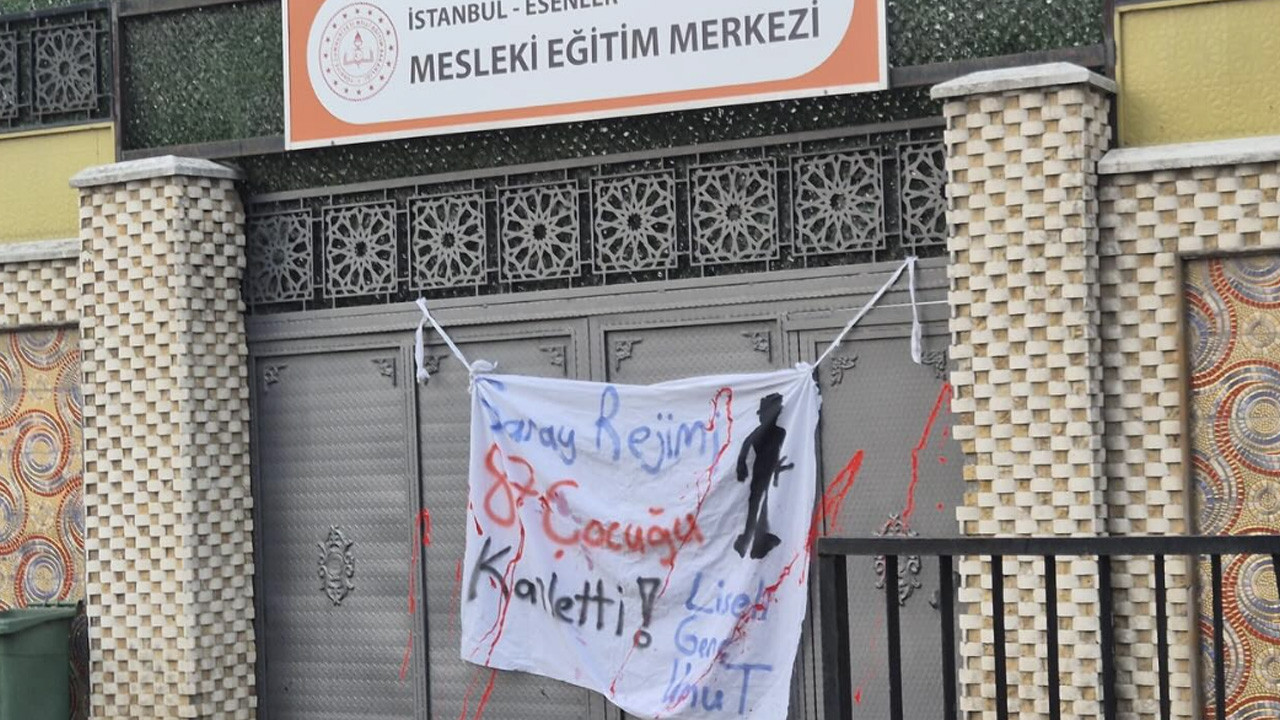 İSTANBUL - ESENLER
MESLEKİ EĞİTİM MERKEZİ
Saray Rejimi
87 Çocuğu
Katletti!
Liseli
Genç
Umut